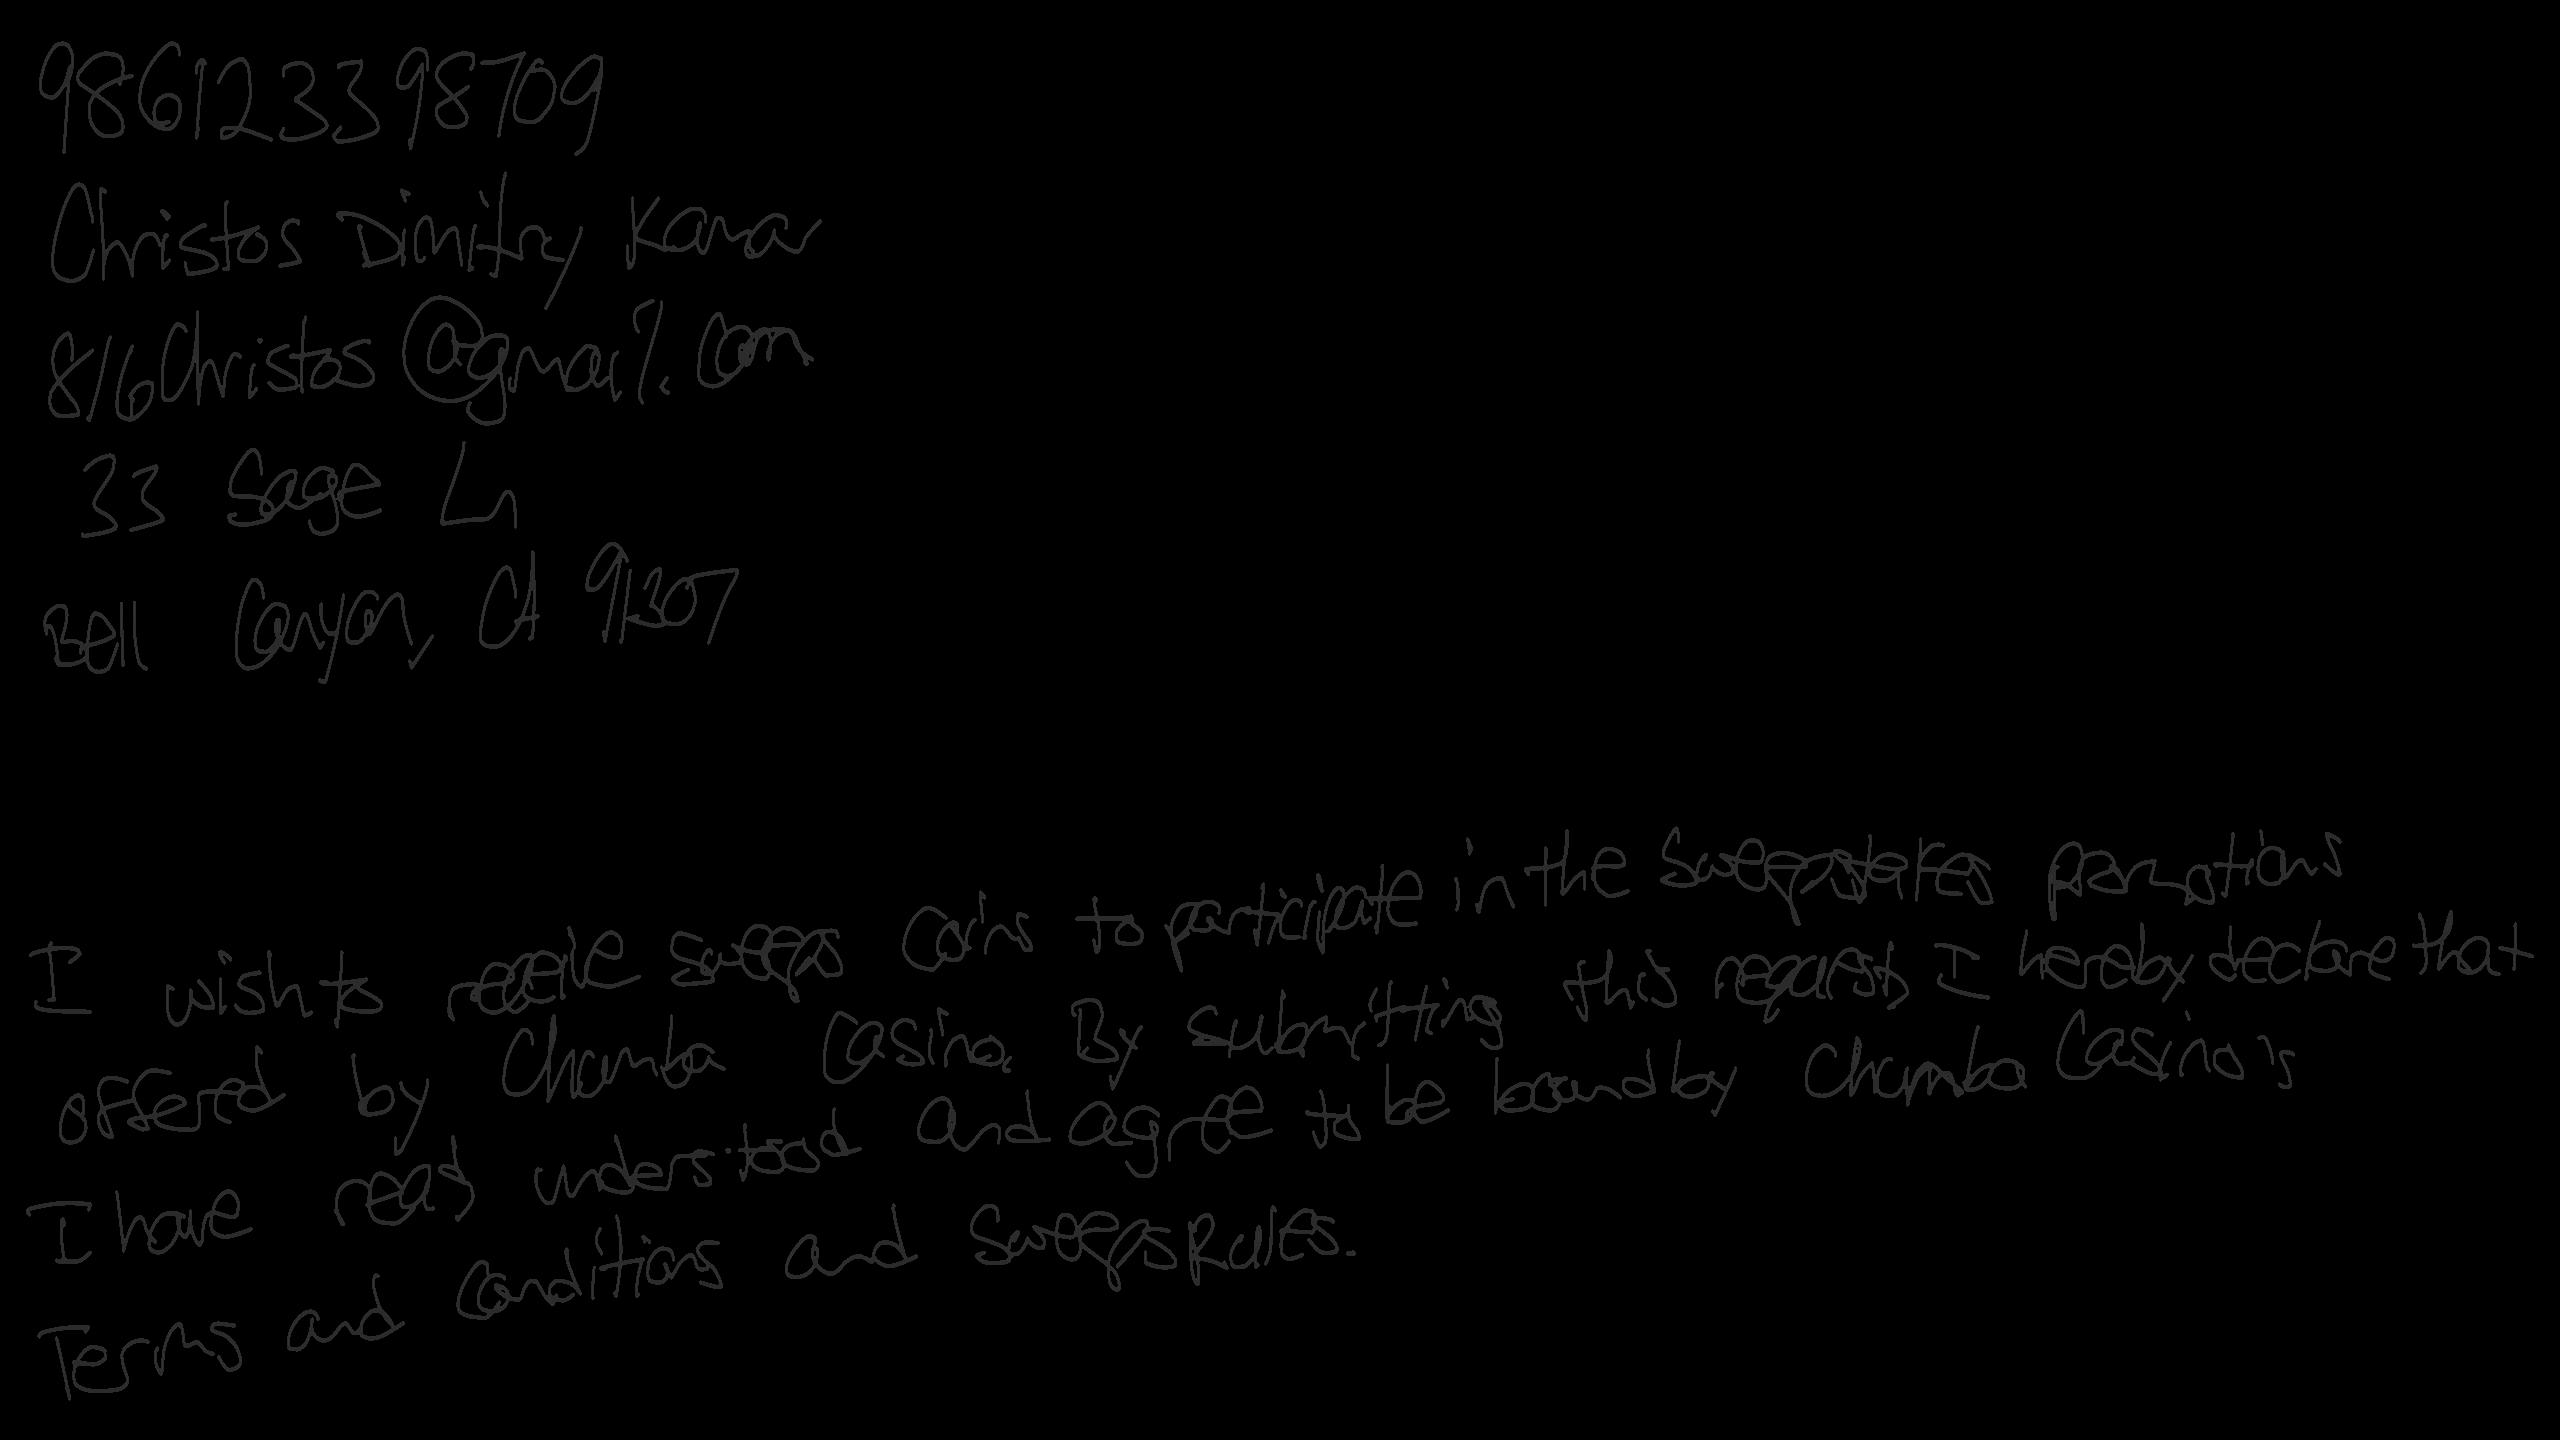 986123398709
Christos Dimitry Karar
816Christos@gmail.com
33 Sage Ln
Bell Canyon, CA 91307
I wish to receive sweeps coins to participate in the sweepstakes promotions
offered by Chumba Casino. By submitting this request, I hereby declare that
I have read understood and agree to be bound by Chumba Casino's
Terms and conditions and Sweeps Rules.